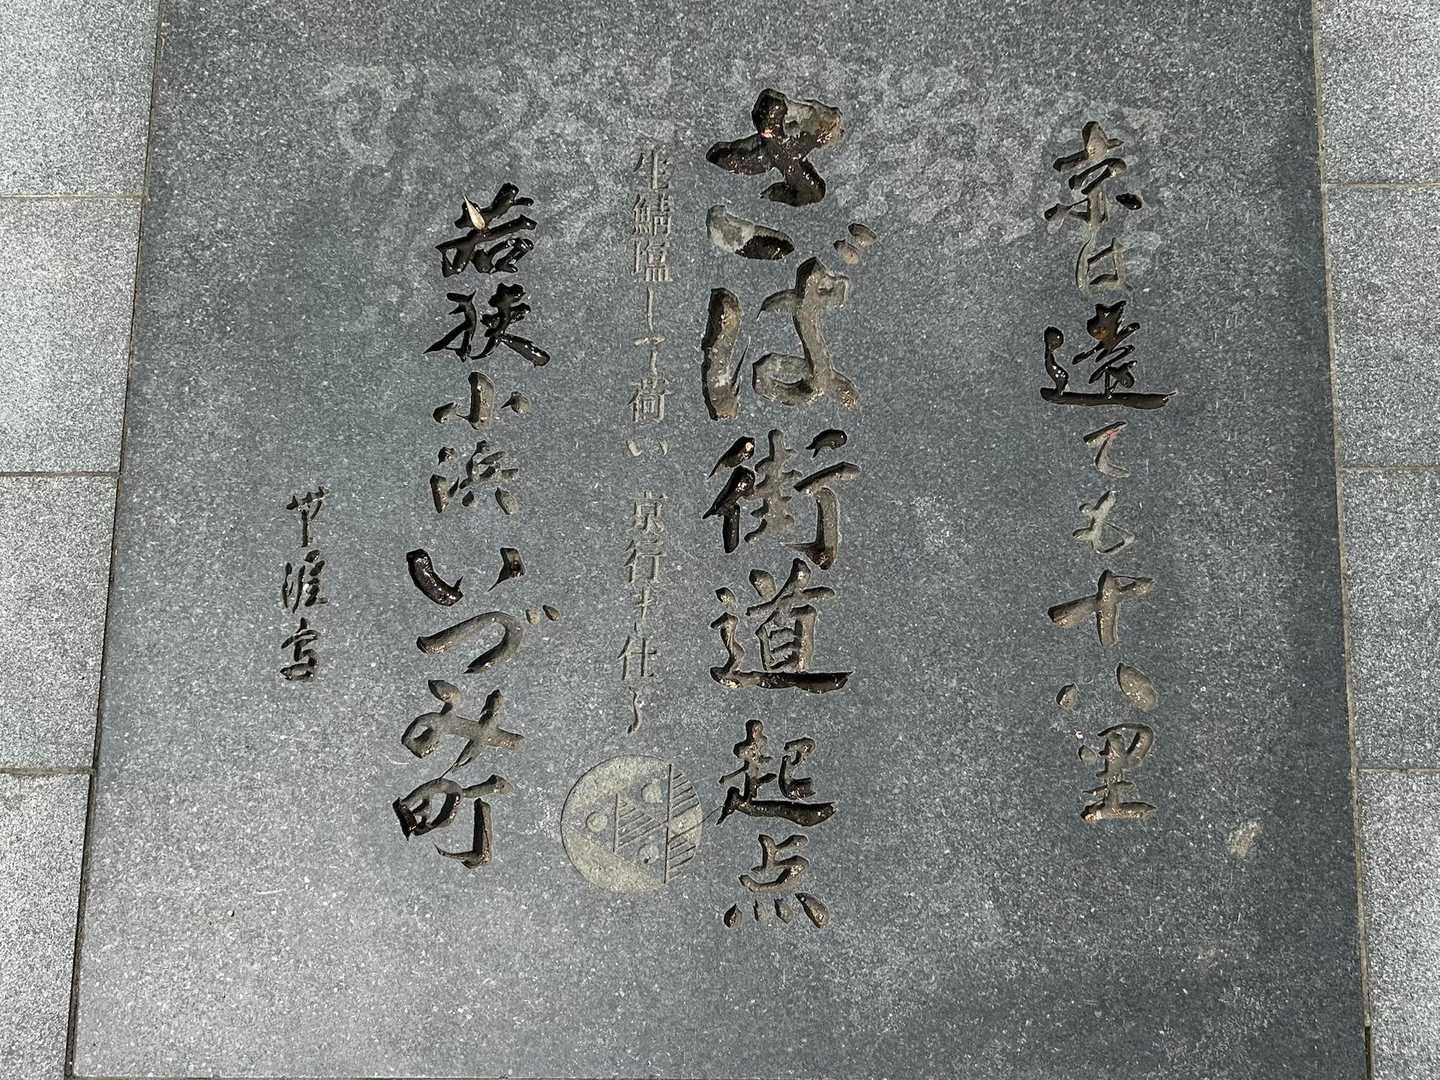 京は遠ても十八里
さば街道起点
生鯖塩して荷い 京行き仕る
若狭小浜いづみ町